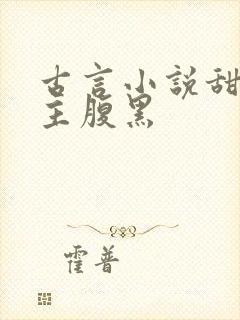 古言小説甜
主腹黑
霍普